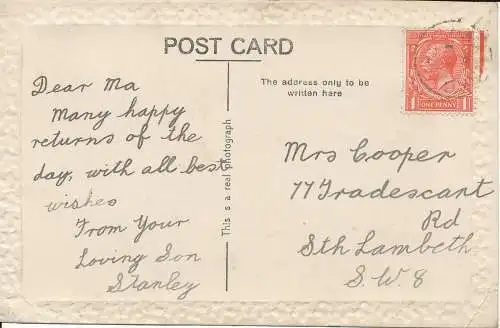 POST CARD
Dear Ma
Many happy
returns of the
day, with all best
wishes
From Your
Loving Son
Stanley
This is a real photograph
The address only to be
written here
ONE PENNY
Mrs Cooper
77 Tradescant
Rd
Sth Lambeth
S.W. 8